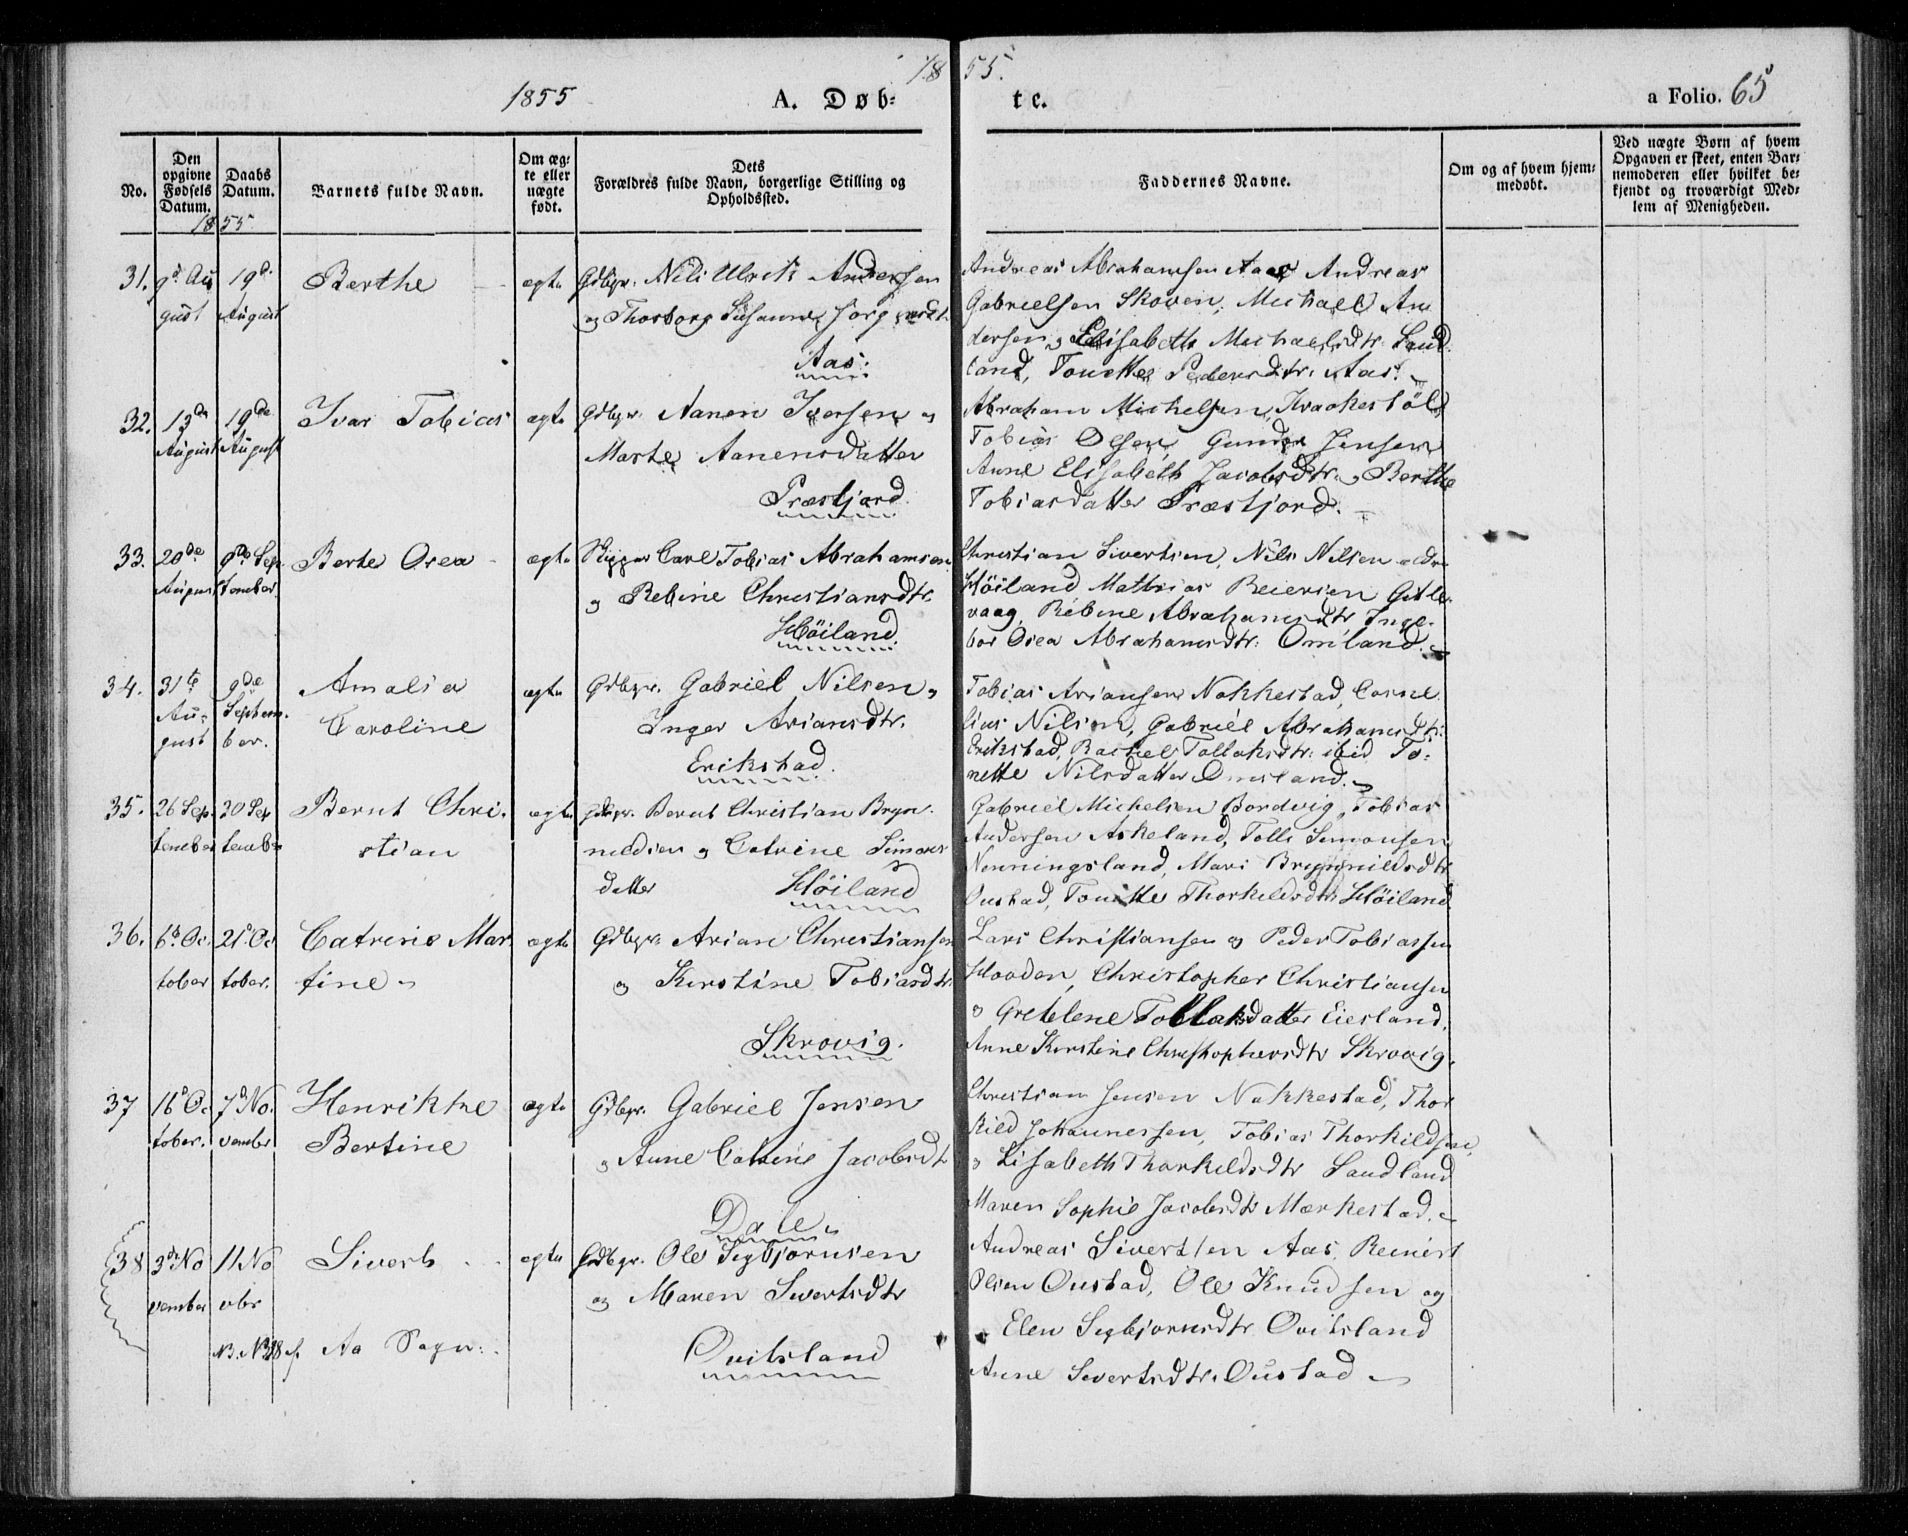 1855
1855.
A. Døb-
te.
a Folio. 65
No.
Den opgivne Fødsels Datum.
Daabs Datum.
Barnets fulde Navn.
Om ægte eller nægte født.
Dets Forældres fulde Navn, borgerlige Stilling og Opholdssted.
Faddernes Navne.
Om og af hvem hjemmedøbt.
Ved nægte Børn af hvem Opgaven er skeet, enten Barnemoderen eller hvilket bekjendt og troværdigt Medlem af Menigheden.
1855
31. 9d Au 19d Berthe ægte Gdbgr. Nils Ulrik Andersen
gust August og Thorborg Susanne
Aas.
Andreas Abrahamsen Aas Andreas
Gabrielsen Skoven, Michael An
dersen, Elisabeth Michaelsdtr. Sand
land, Tonette Pedersdtr. Aas.
32. 13de 19de Ivar Tobias ægte Gdbgr. Aanen Iversen og
August August Marte Aanensdatter
Præstjord.
Abraham Michelsen Kraakestöl
Tobias Olsen, Gunder Jensen
Anne Elisabeth Jacobsdtr. og Berthe
Tobiasdatter Præstjord.
33. 20de 9de Sep Berte Osea ægte Skipper Carl Tobias Abrahamsen
August tember og Rebine Christiansdtr.
Höiland.
Christian Sivertsen, Nils Nilsen
Höiland Mathias Reiersen Gitle
vaag, Rebine Abrahamsdtr Inge-
bor Osea Abrahamsdtr: Omland.
34. 31te 9de Amalia ægte Gdbgr. Gabriel Nilsen og
Au- Septem- Caroline Inger Ariansdtr.
gust ber. Erikstad.
Tobias Ariansen Nakkestad, Corne
lius Nilsen, Gabriel Abrahamsdtr:
Erikstad, Rachel Tollaksdtr: ibid To-
nette Nilsdatter Omsland.
35. 26 Sep- 30 Sep Bernt Chri- ægte Gdbgr. Bernt Christian Bryn-
tember tember stian nildsen og Catrine Simons
datter Höiland
Gabriel Michelsen Bordvig, Tobias
Andersen Askeland, Tolli Simonsen
Nenningsland, Mari Brynnildsdtr
Oustad, Tonette Thorkildsdtr Höiland.
36. 6te Oc- 21d Oc Catrine Mar ægte Gdbgr. Arian Christiansen
tober tober. tine og Kirstine Tobiasdtr.
Skrovig.
Lars Christiansen og Peder Tobiassen
Haaden, Christopher Christiansen
og Gretelene Tollaksdatter Eiesland,
Anne Kirstine Christophersdtr Skrovig.
37 16d Oc 7d No. Henrikke ægte Gdbgr. Gabriel Jensen
tober. vember Bertine og Anne Catrine Jacobsdtr
Dale
Christian Jensen Nakkestad, Thor
kild Johannessen, Tobias Thorkildsen,
og Lisabeth Thorkildsdtr Sandland
Maren Sophie Jacobsdtr Mærkestad.
38 3de No 11 No Sivert ægte Gdbgr. Ole Sigbjornsen
vember vbr og Maren Sivertsdtr
N. N 18 f. Aa Sogn: Ovitsland
Andreas Sivertsen Aas, Reinert
Olsen Oustad, Ole Knudsen og
Elen Sigbjornsdtr Ovitsland
Anne Sivertsdtr. Oustad